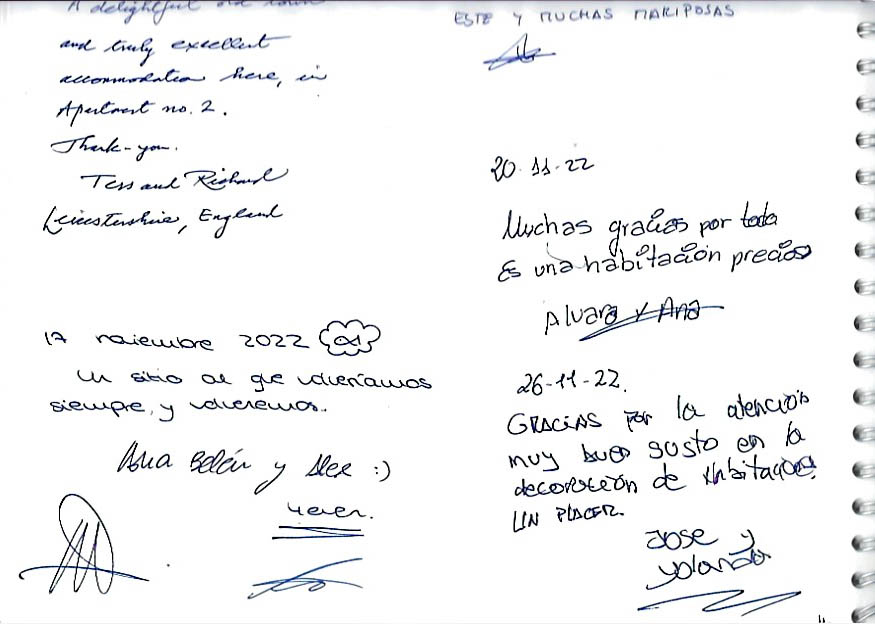 A delightful old town
and truly excellent
accommodation here, in
Apartment no. 2.
Thank-you.
Tess and Richard
Leicestershire, England
17 noviembre 2022
Un sitio al que volveríamos
siempre, y volveremos.
Ana Belén y Alex :)
4ever.
ESTE Y MUCHAS MARIPOSAS
20-11-22
Muchas gracias por todo
Es una habitación preciosa
Alvaro y Ana
26-11-22.
GRACIAS POR la atención
muy buen gusto en la
decoración de habitaciones.
UN PLACER.
Jose y
Yolanda